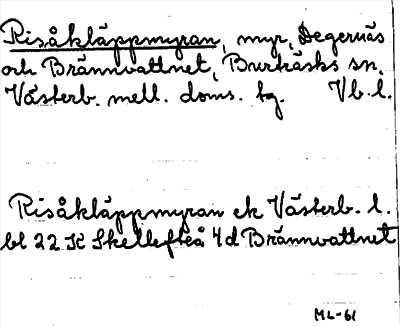 Risåkläppmyran, myr, Degernäs
och Brännvattnet, Burträsks sn.
Västerb. mell. doms. tg. Vb.l.
Risåkläppmyran ek Västerb. l.
bl 22 K Skellefteå 4d Brännvattnet
ML-61